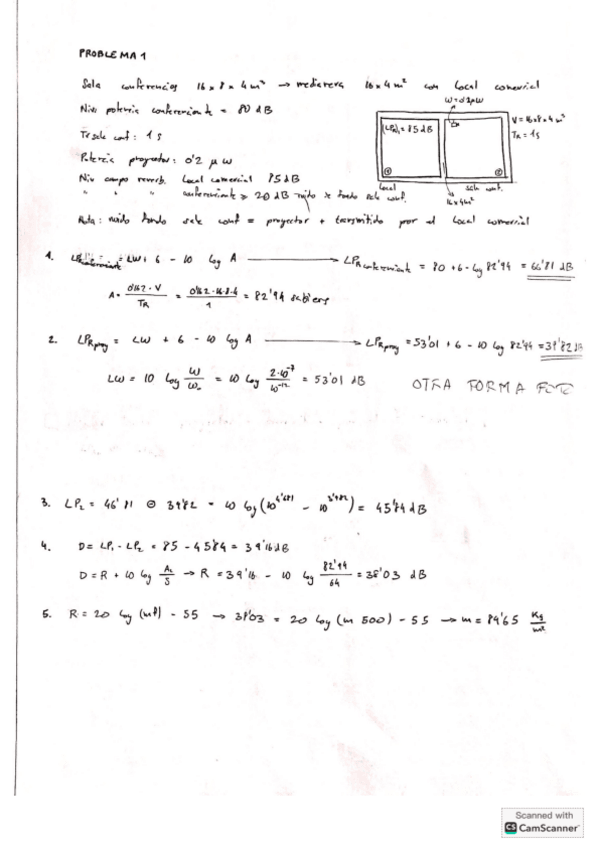 PROBLEMA 1
Sala conferencias 16 x 8 x 4 m³ → medianera 16 x 4 m² con local comercial
Niv. potencia conferenciante = 80 dB
Tr sala conf: 1 s
Potencia proyector: 0'2 μW
Niv campo reverb. local comercial 85 dB
" " " conferenciante > 20 dB ruido x fondo sala conf.
Nota: ruido fondo sala conf = proyector + transmitido por el local comercial
W=0'2μW
(LP₁) = 85 dB
V = 16x8x4 m³
TR = 1s
① ②
local sala conf.
16x4m²
1. LPR conferenciante = LW + 6 - 10 log A → LPR conferenciante = 80 + 6 - log 82'94 = 66'81 dB
A = 0'162·V / TR = 0'162·16·8·4 / 1 = 82'94 sabiens
2. LPR proy = LW + 6 - 10 log A → LPR proy = 53'01 + 6 - 10 log 82'94 = 39'82 dB
LW = 10 log W/W₀ = 10 log 2·10⁻⁷/10⁻¹² = 53'01 dB
OTRA FORMA FOTO
3. LP₂ = 46'81 ⊖ 39'82 = 10 log (10^4'681 - 10^3'982) = 45'84 dB
4. D = LP₁ - LP₂ = 85 - 45'84 = 39'16 dB
D = R + 10 log A₂/S → R = 39'16 - 10 log 82'94/64 = 38'03 dB
5. R = 20 log (mf) - 55 → 38'03 = 20 log (m 500) - 55 → m = 89'65 Kg/m²
Scanned with
CS CamScanner